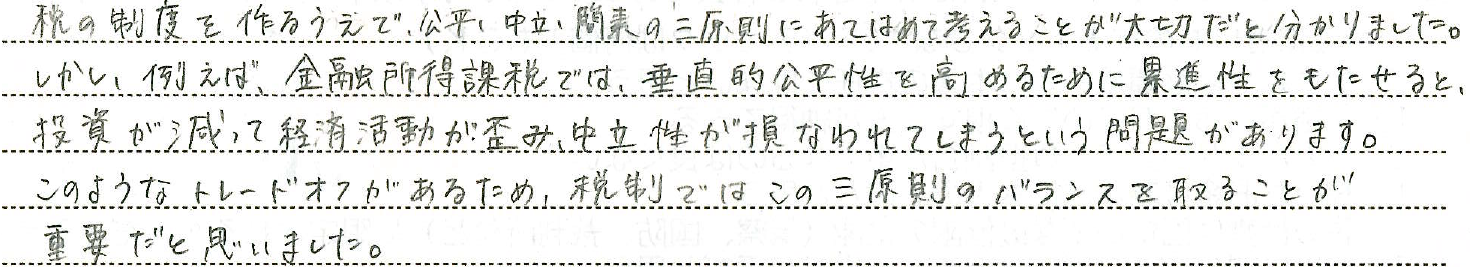 税の制度を作るうえで、公平、中立、簡素の三原則にあてはめて考えることが大切だと分かりました。
しかし、例えば、金融所得課税では、垂直的公平性を高めるために累進性をもたせると、
投資が減って経済活動が歪み、中立性が損なわれてしまうという問題があります。
このようなトレードオフがあるため、税制ではこの三原則のバランスを取ることが
重要だと思いました。